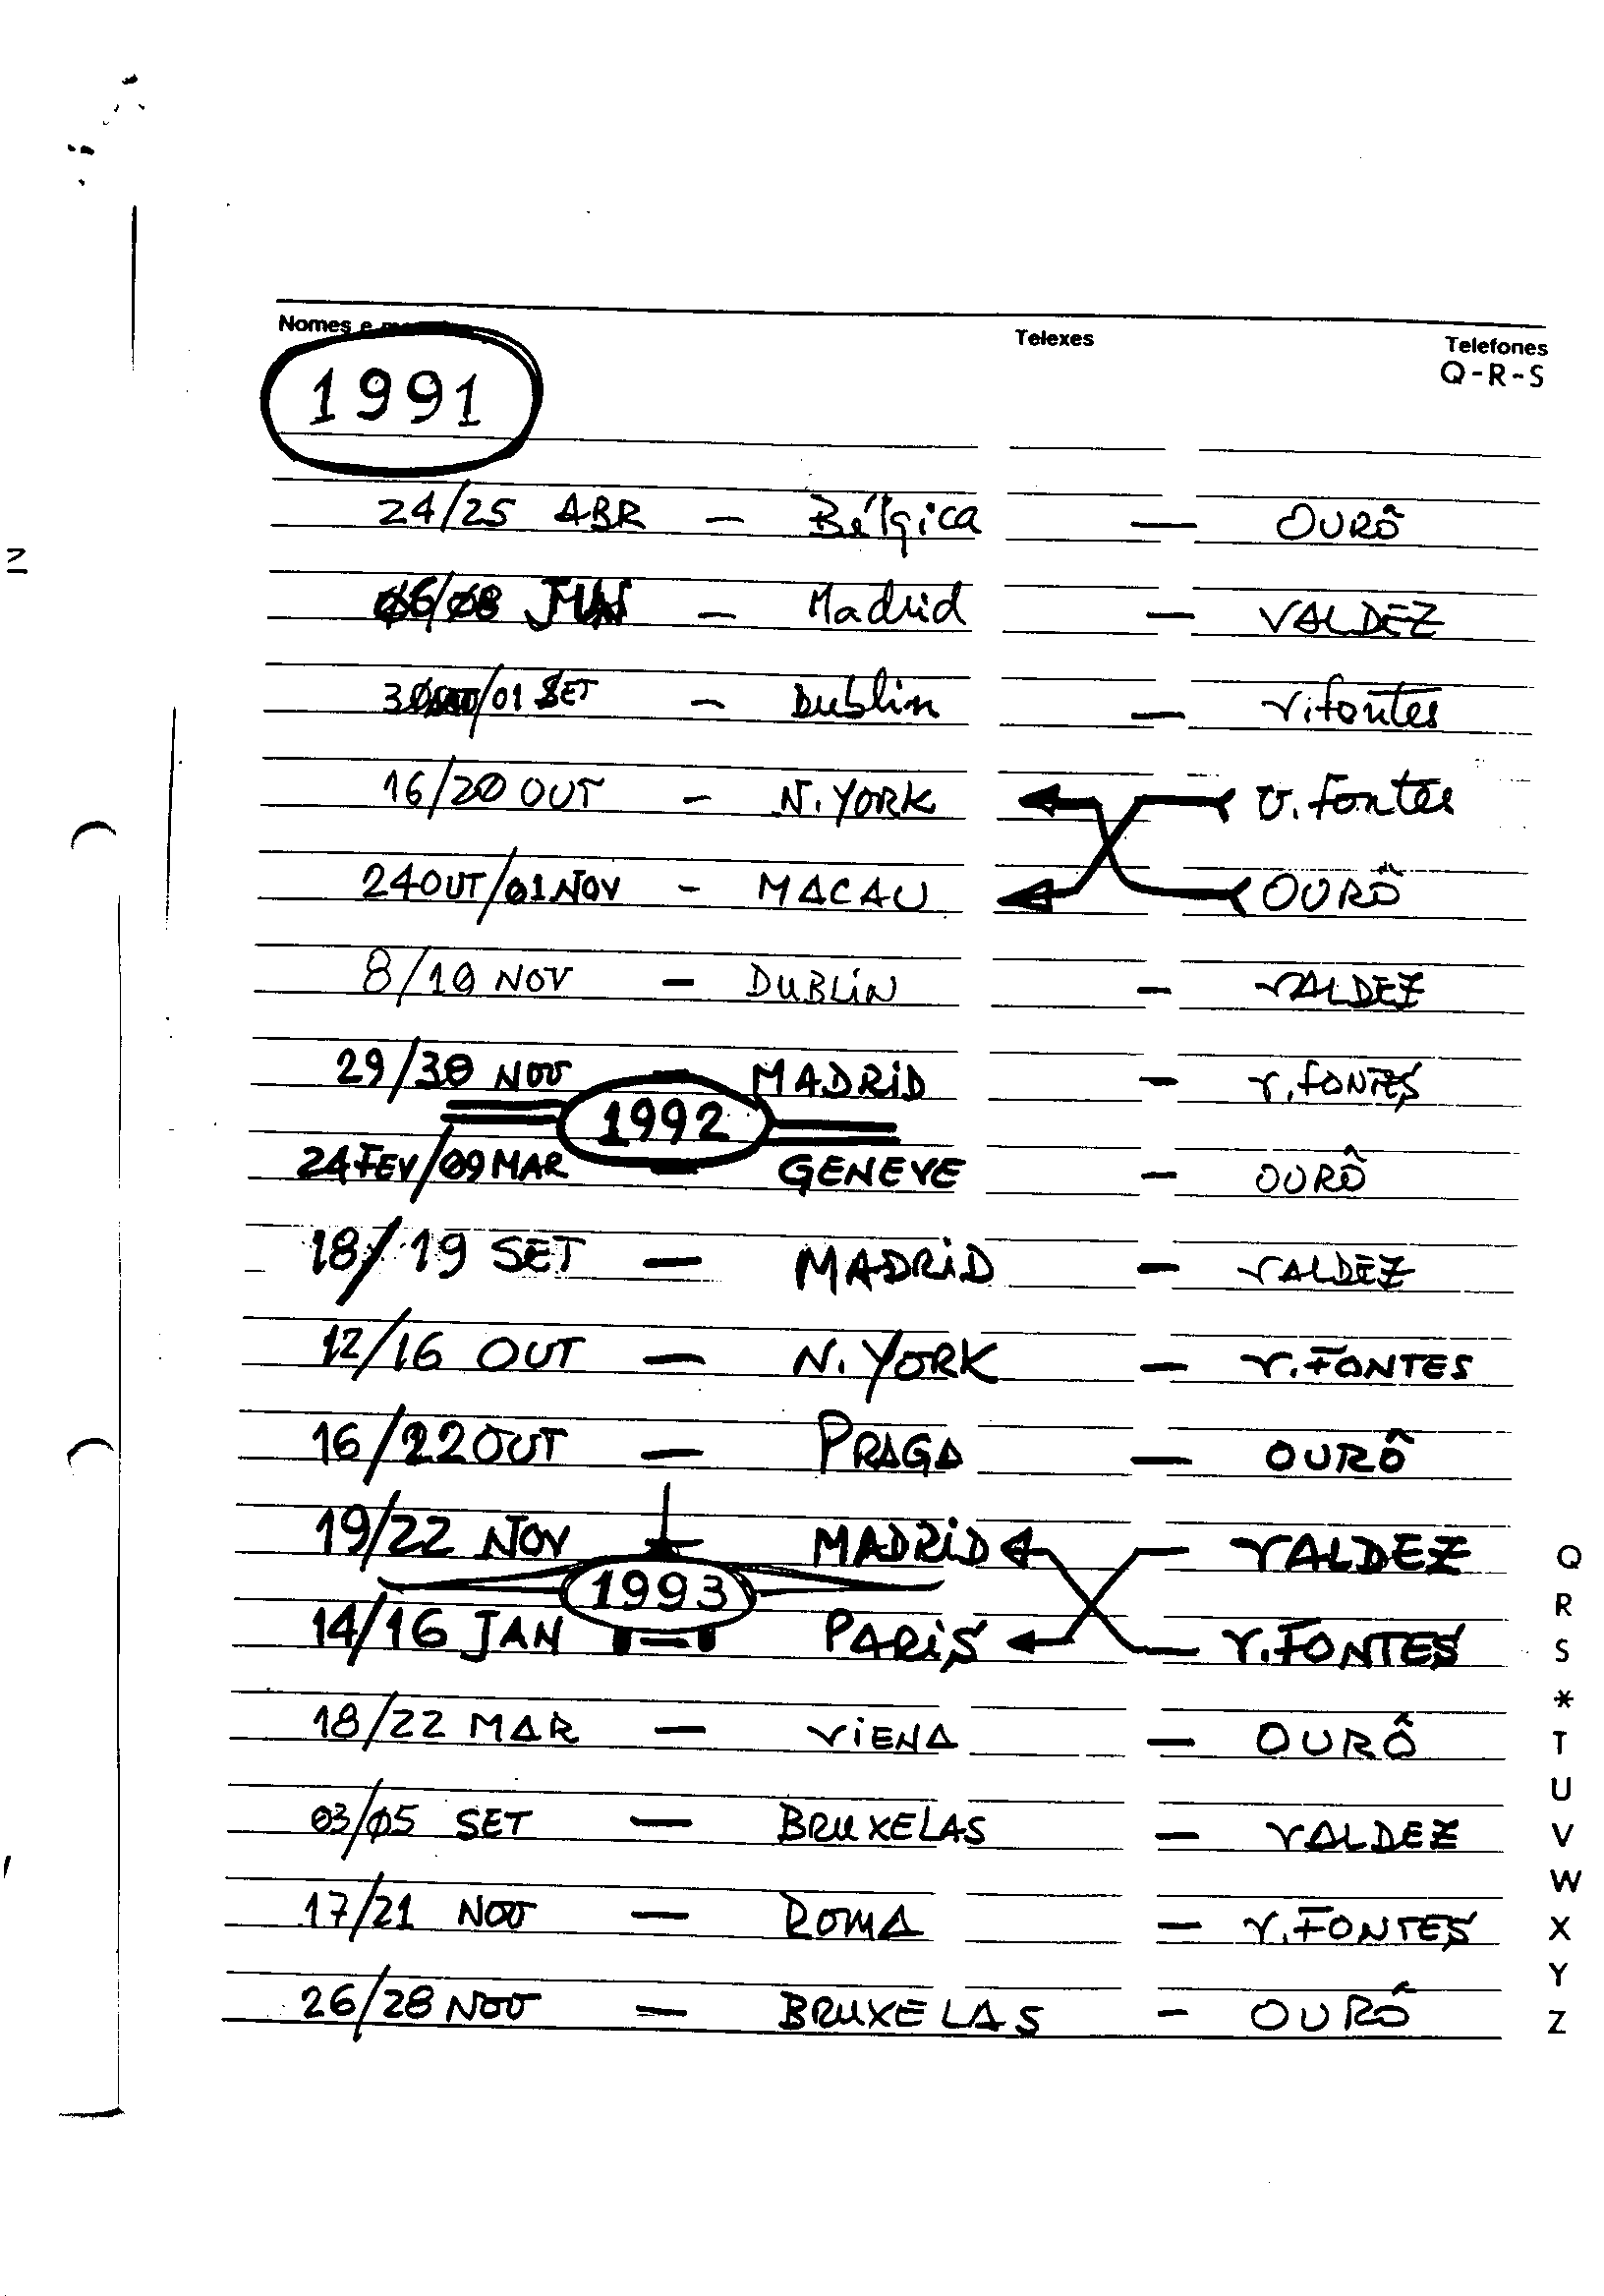 Nomes e
Telexes
Telefones
Q-R-S
1991
24/25 ABR — Bélgica — OURÔ
06/08 JUN — Madrid — VALDEZ
30/01 SET — Dublin — V.fontes
16/20 OUT — N.YORK V.fontes
24OUT/01NOV — MACAU OURÔ
8/10 NOV — DUBLiN — VALDEZ
29/30 NOV — MADRiD — V.FONTES
1992
24FEV/09MAR — GENEVE — OURÔ
18/19 SET — MADRiD — VALDEZ
12/16 OUT — N.YORK — V.FONTES
16/22OUT — PRAGA — OURÔ
19/22 NOV MADRiD VALDEZ
1993
14/16 JAN — PARiS V.FONTES
18/22 MAR — ViENA — OURÔ
03/05 SET — BRUXELAS — VALDEZ
17/21 NOV — ROMA — V.FONTES
26/28 NOV — BRUXELAS — OURÔ
Q
R
S
*
T
U
V
W
X
Y
Z